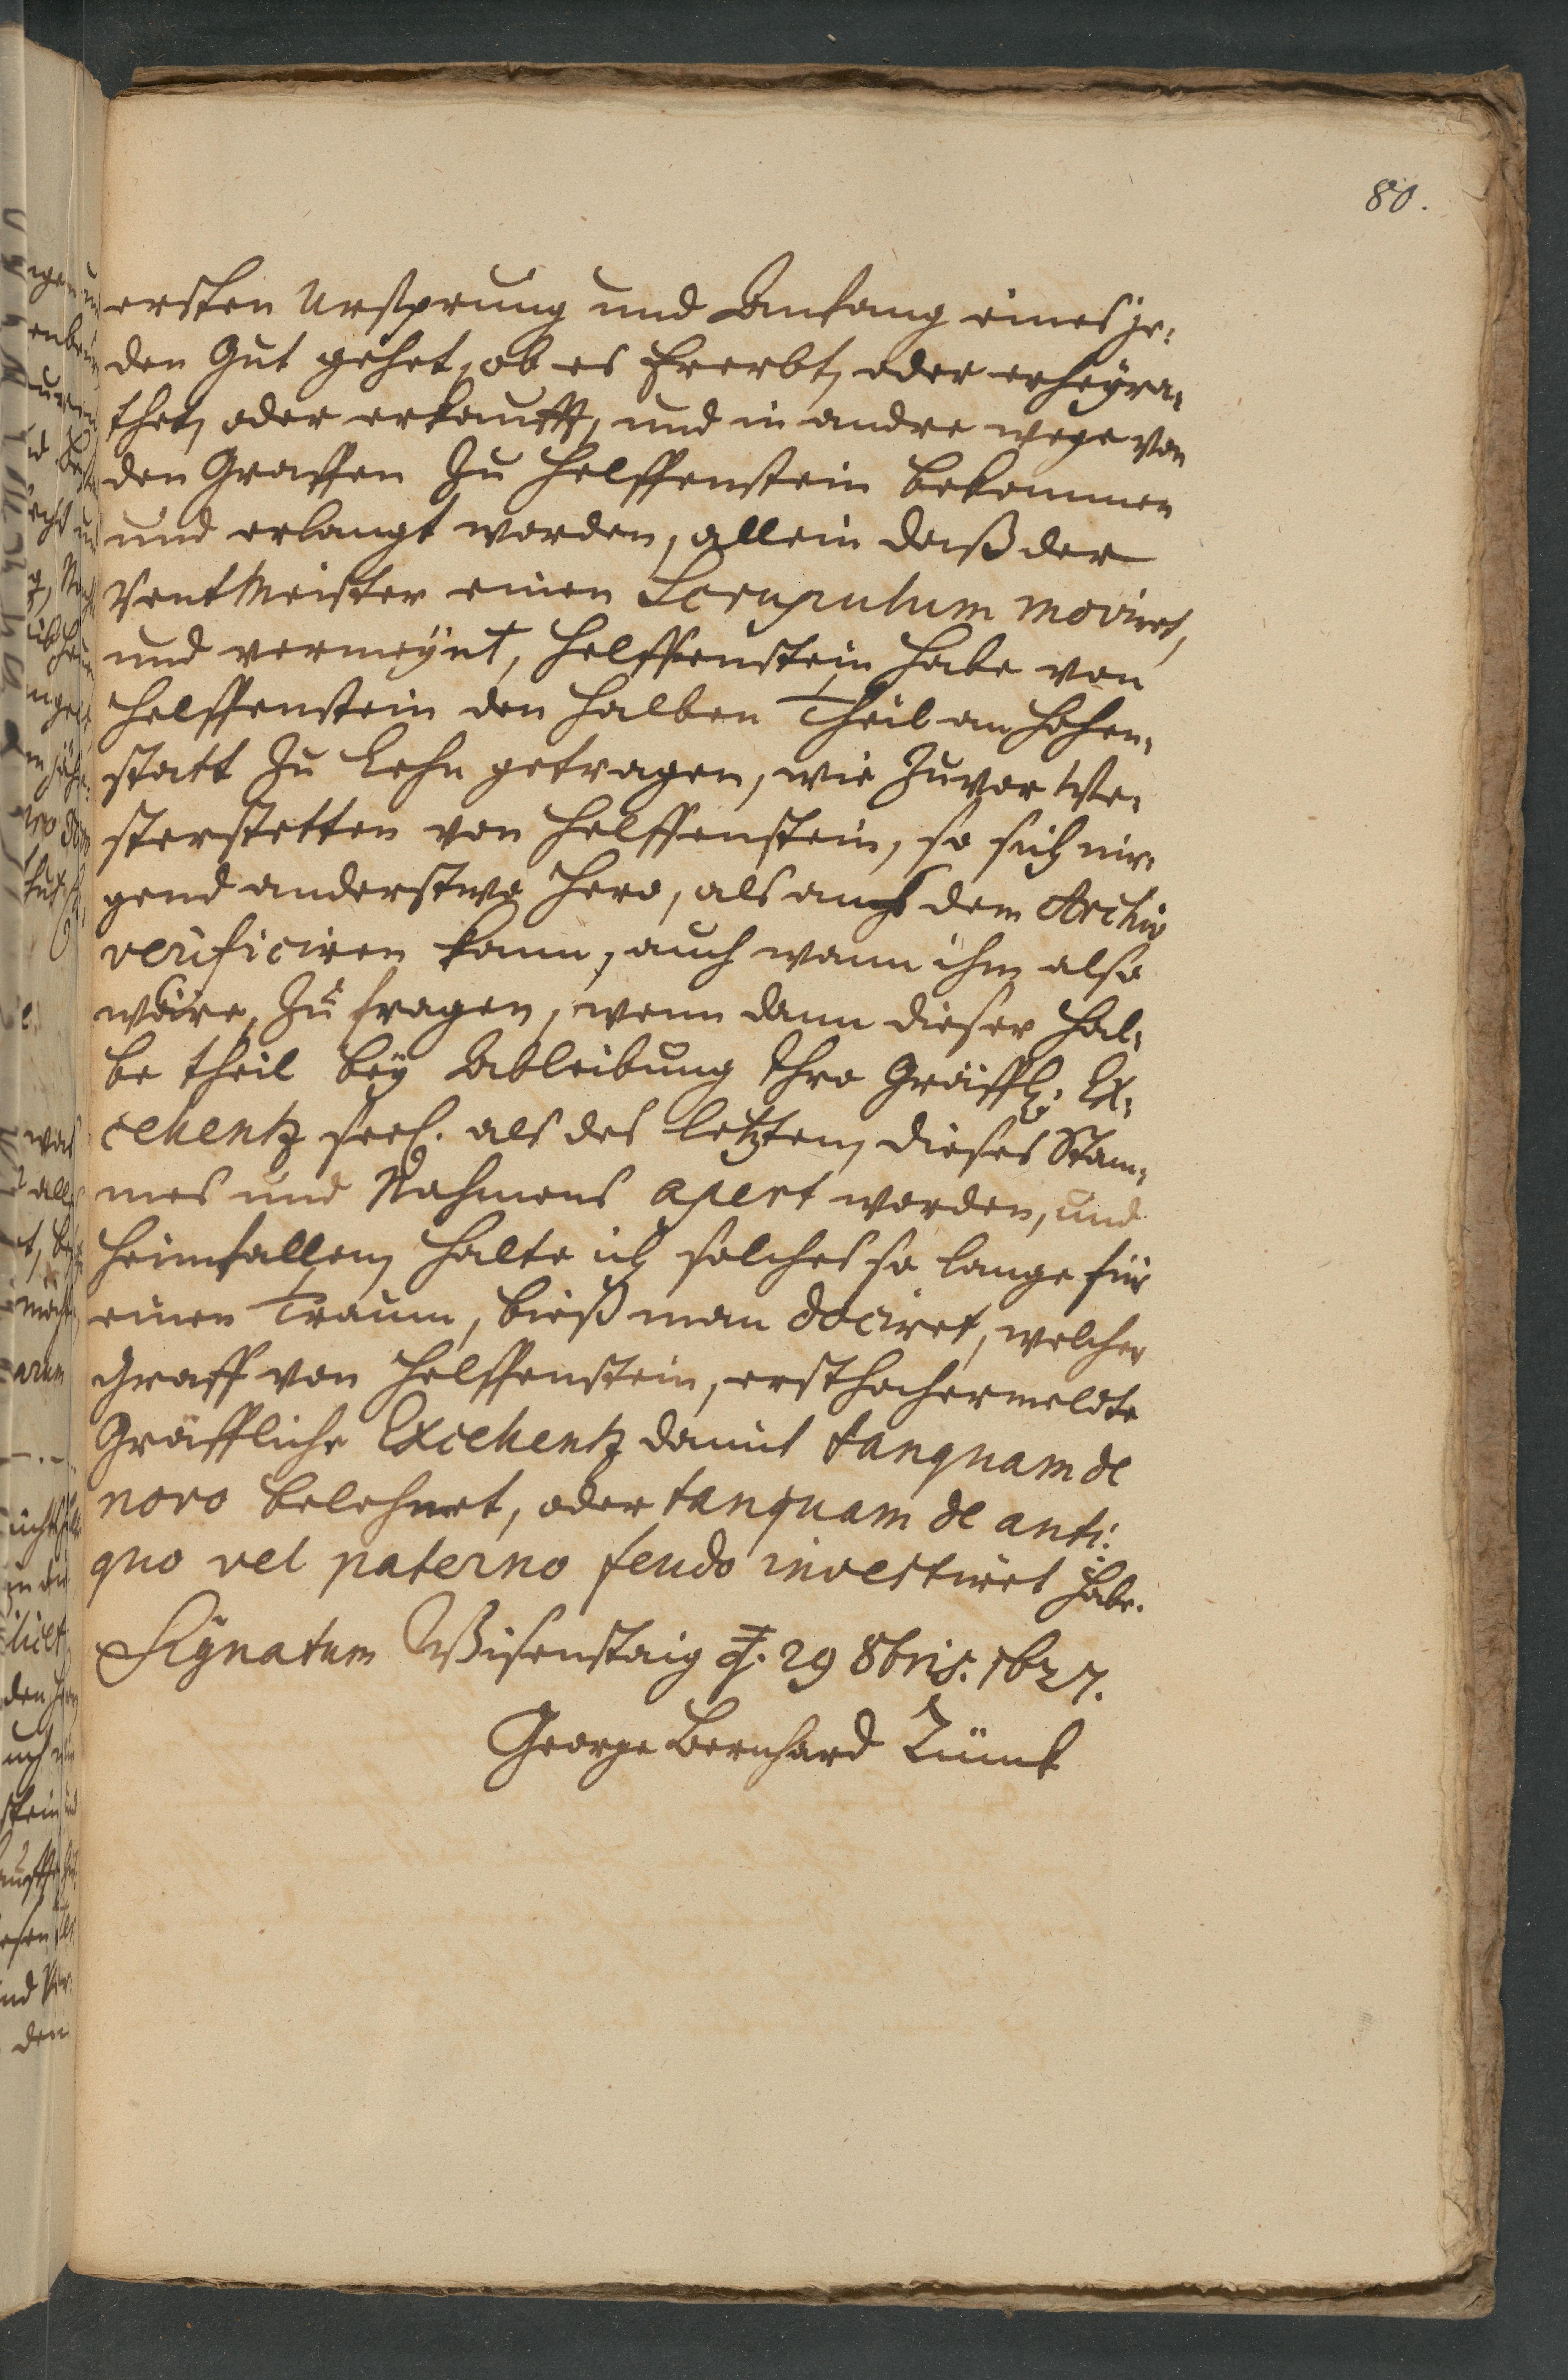 80.
ersten Ursprung und Anfang eines je-
den Gut gehet, ob es Ererbt, oder erheyra-
thet, oder erkaufft, und in andre wege von
den Graffen zu Helffenstein bekommen
und erlangt worden, allein daß der
RentMeister einen Scrupulum moviret,
und vermeynt, Helffenstein habe von
Helffenstein den halben Theil an Hohen-
statt zu Lehn getragen, wie zuvor We-
sterstetten von Helffenstein, so sich nir-
gend anderstwo hero, als auß dem Archiv
verificiren kann, auch wann ihm also
wäre, zu fragen, wenn dann dieser hal-
be theil bey Ableibung Ihro Gräffl: Ex-
cellentz seel. als des letzten, dieses Stam-
mes und Nahmens apert worden, und
heimfallen, halte ich solches so lange für
einen Traum, bieß man dociret, welcher
Graff von Helffenstein, ersthochermeldte
Gräffliche Excellentz damit tanquam de
novo belehnet, oder tanquam de anti-
quo vel paterno feudo investiret habe.
Signatum Wisenstaig d. 29 8bris. 1627.
George Bernhard